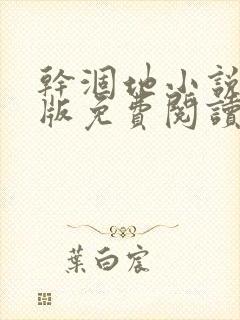 幹涸地小說
版免費閱讀
葉白宸